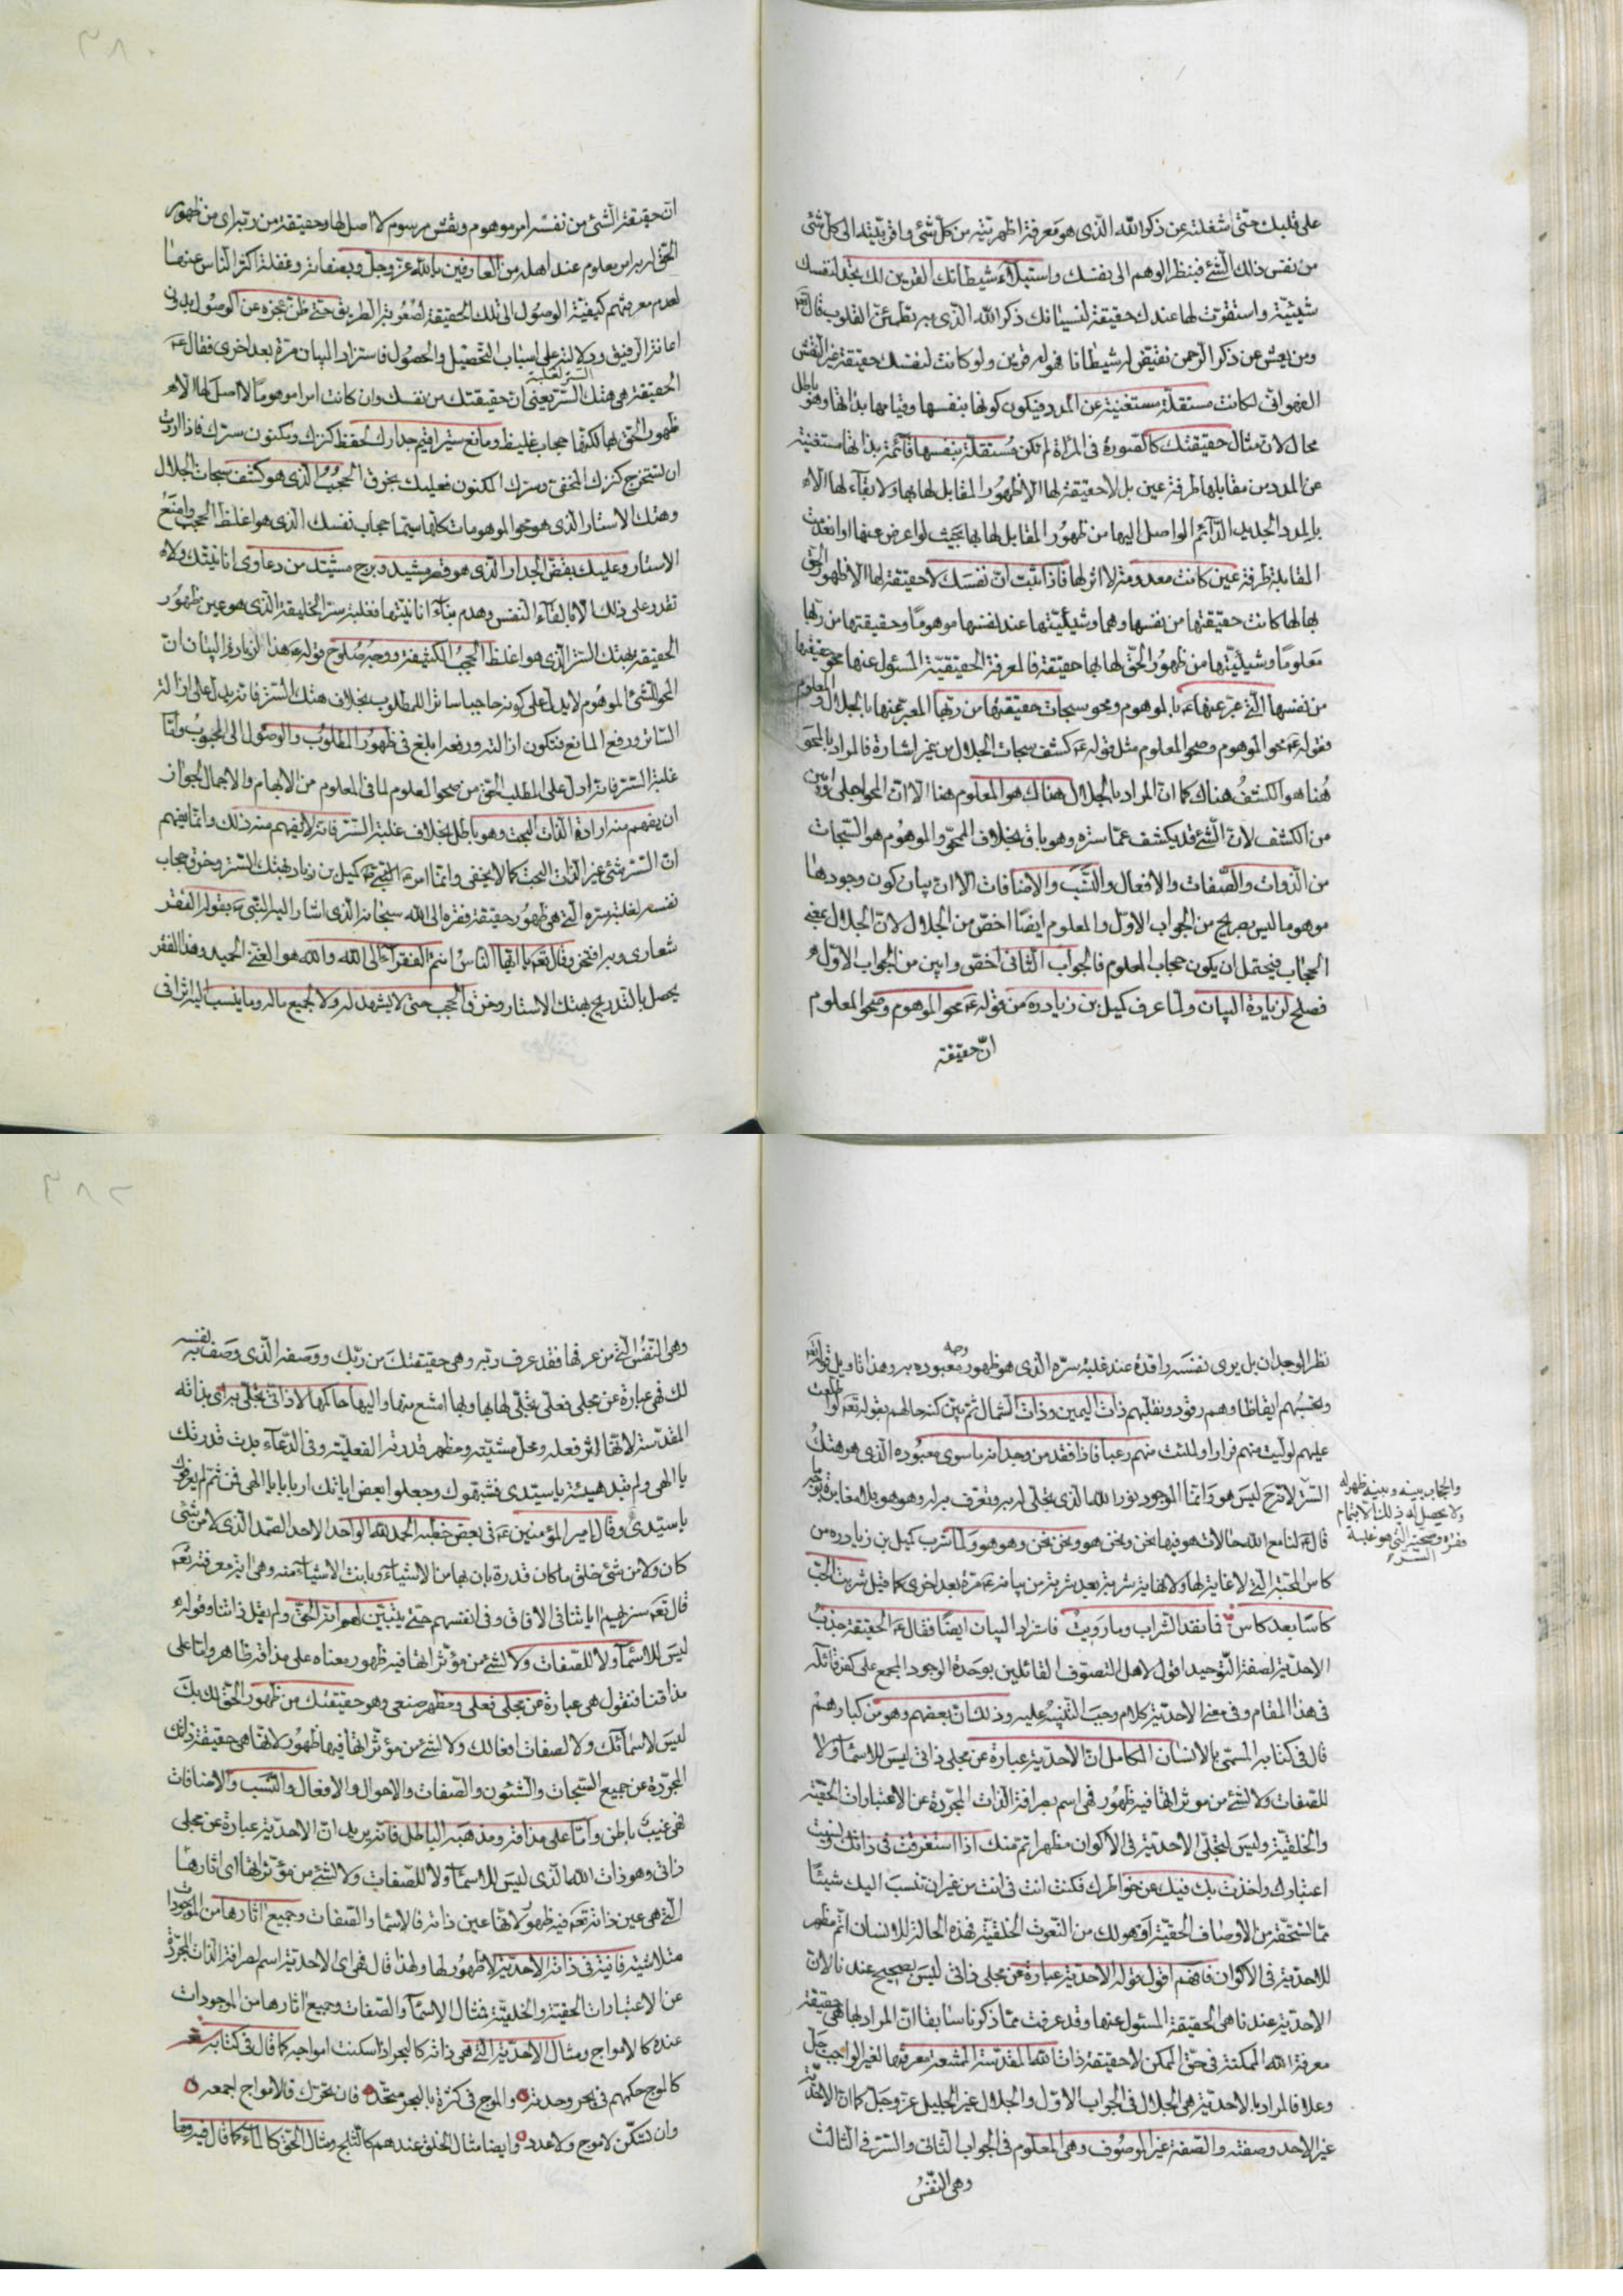 على قلبك حتى اشغلته عن ذكر الله الذى هو معرفة اظهريته من كل شئ واقربيته الى كل شئ
من نفس ذلك الشئ فبنظر الوهم الى نفسك واستيلاء شيطانك القرين لك تجد لنفسك
شيئية واستقرت لها عندك حقيقة لنسيانك ذكر الله الذى به تطمئن القلوب قال تع
ومن يعش عن ذكر الرحمن نقيض له شيطانا فهو له قرين ولو كانت لنفسك حقيقة غير النقش
الفهوانى لكانت مستقلة مستغنية عن المدد فيكون كونها بنفسها وقيامها بذاتها وهو باطل
محال لان مثال حقيقتك كالصورة فى المرآة لم تكن مستقلة بنفسها قائمة بذاتها مستغنية
عن المدد من مقابلها طرفة عين بل لا حقيقة لها الا ظهور المقابل لها بها ولا بقاء لها الا
بالمدد الجديد الدائم الواصل اليها من ظهور المقابل لها بها بحيث لو اعرض عنها او انعدمت
المقابلة طرفة عين كانت معدومة لا اثر لها فاذا ثبت ان نفسك لا حقيقة لها الا ظهور الحق
بها لها كانت حقيقتها من نفسها وهما وشيئيتها عند نفسها موهوما وحقيقتها من ربها
معلوما وشيئيتها من ظهور الحق لها بها حقيقة فالمعرفة الحقيقية المسئول عنها محو حقيقتها
من نفسها التى عبر عنها ع بالموهوم ومحو سبحات حقيقتها من ربها المعبر عنها بالجلال والمعلوم
فقوله ع محو الموهوم وصحو المعلوم مثل قوله ع كشف سبحات الجلال من غير اشارة فالمراد بالمحو
هنا هو الكشف هناك كما ان المراد بالجلال هناك هو المعلوم هنا الا ان المحو اجلى وابين
من الكشف لان الشئ قد يكشف عما ستره وهو باق بخلاف المحو والموهوم هو السبحات
من الذوات والصفات والافعال والنسب والاضافات الا ان بيان كون وجودها
موهوما ليس بصريح من الجواب الاول والمعلوم ايضا اخص من الجلال لان الجلال بمعنى
الحجاب فيحتمل ان يكون حجاب المعلوم فالجواب الثانى اخص وابين من الجواب الاول
فصلح لزيادة البيان ولما عرف كميل بن زياد ره من قوله ع محو الموهوم وصحو المعلوم
ان حقيقة
٣٨٠
ان حقيقة الشئ من نفسه امر موهوم ونقش مرسوم لا اصل لها وحقيقته من ربه اى من ظهور
الحق له به امر معلوم عند اهله من العارفين بالله عز وجل وبصفاته وغفلة اكثر الناس عنها
لعدم معرفتهم كيفية الوصول الى تلك الحقيقة لصعوبة الطريق حتى ظن عجزه عن الوصول بدون
اعانة الرفيق ودلالته على اسباب التحصيل والحصول فاستزاد البيان مرة بعد اخرى فقال ع
لغلبة السر
الحقيقة هى هتك الستر يعنى ان حقيقتك من نفسك وان كانت امرا موهوما لا اصل لها الا
ظهور الحق بها لكنها حجاب غليظ ومانع ستير اقيم جدارك لحفظ كنزك ومكنون سرك فاذا اردت
ان تستخرج كنزك المخفى وسرك المكنون فعليك بخرق الحجب الذى هو كشف سبحات الجلال
وهتك الاستار الذى هو محو الموهومات كلها سيما حجاب نفسك الذى هو اغلظ الحجب وامنع
الاستار وعليك بنقض الجدار الذى هو قصر مشيد وبرج مشيد من دعاوى انانيتك ولا
تقدر على ذلك الا بالقاء النفس وهدم بناء انانيتها فغلبة سر الخليقة الذى هو عين ظهور
الحقيقة بهتك الستر الذى هو اغلظ الحجب الكثيفة ووجه صلوح قوله ع هذا لزيادة البيان ان
المحو للشئ الموهوم لا يدل على كونه حاجبا ساترا للمطلوب بخلاف هتك الستر فانه يدل على ازالة
الساتر ورفع المانع فتكون ازالته ورفعه ابلغ فى ظهور المطلوب والوصول الى المحبوب واما
غلبة السر فانه ادل على المطلب الحق من صحو المعلوم لما فى المعلوم من الابهام والاجمال لجواز
ان يفهم منه ارادة الذات البحت وهو باطل بخلاف غلبة السر فانه لا يفهم منه ذلك وانما يفهم
ان السر شئ غير الذات البحت كما لا يخفى وانما امر ع كميل بن زياد بهتك الستر وخرق حجاب
نفسه لغلبة سره التى هى ظهور حقيقة فقره الى الله سبحانه الذى اشار اليه النبى ص بقوله الفقر
شعارى وبه افتخر وقال تع يا ايها الناس انتم الفقراء الى الله والله هو الغنى الحميد وهذا الفقر
يحصل بالتدريج بهتك الاستار وخرق الحجب حتى لا يشهد له ولا لجميع ماله وما ينسب اليه اثرا فى
نظر الوجدان بل يرى نفسه راقدة عند غلبة سره الذى هو ظهور وجه معبوده به وهذا تاويل قوله تع
وتحسبهم ايقاظا وهم رقود ونقلبهم ذات اليمين وذات الشمال ثم بين كنه حالهم بقوله تع لو اطلعت
عليهم لوليت منهم فرارا ولملئت منهم رعبا فاذا فقد من وجدانه ما سوى معبوده الذى هو هتك
الستر لانه ح ليس هو وانما الموجود نور الله الذى تجلى له به وتعرف به له وهو هو بلا مغايرة
والحجاب بينه وبينه ظهر له
ولا يحصل له ذلك الا بتمام
فقره وصحته التى هو غلبة
السر
قال ع لنا مع الله حالات هو فيها نحن ونحن هو ونحن نحن وهو هو ولما شرب كميل بن زياد ره من
كاس المحبة التى لا غاية لها ولا نهاية شربة بعد شربة من بيانه ع مرة بعد اخرى كما قيل شربت الحب
كاسا بعد كاس فما نفد الشراب وما رويت فاستزاد البيان ايضا فقال ع الحقيقة جذب
الاحدية لصفة التوحيد اقول لاهل التصوف القائلين بوحدة الوجود المجمع على كفر قائله
فى هذا المقام وفى معنى الاحدية كلام وجب التنبيه عليه وذلك ان بعضهم وهو من كبارهم
قال فى كتابه المسمى بالانسان الكامل ان الاحدية عبارة عن مجلى ذاتى ليس للاسماء ولا
للصفات ولا لشئ من موثراتها فيه ظهور فهى اسم لصرافة الذات المجردة عن الاعتبارات الحقية
والخلقية وليس لتجلى الاحدية فى الاكوان مظهر اتم منك اذا استغرقت فى ذاتك ونسيت
اعتبارك واخذت بك فيك عن خواطرك فكنت انت فى انت من غير ان تنسب اليك شيئا
مما تستحقه من الاوصاف الحقية او هو لك من النعوت الخلقية فهذه الحالة للانسان اتم مظهر
للاحدية فى الاكوان فافهم اقول قوله الاحدية عبارة عن مجلى ذاتى ليس بصحيح عندنا لان
الاحدية عندنا هى الحقيقة المسئول عنها وقد عرفت مما ذكرنا سابقا ان المراد بها هى حقيقة
معرفة الله الممكنة فى حق الممكن لا حقيقة ذات الله المقدسة الممتنعة معرفتها لغير الواجب جل
وعلا فالمراد بالاحدية هى الجلال فى الجواب الاول والجلال غير الجليل عز وجل كما ان الاحدية
غير الاحد وصفته والصفة غير الموصوف وهى المعلوم فى الجواب الثانى والسر فى الثالث
وهى النفس
٣٨٢
وهى النفس التى من عرفها فقد عرف ربه وهى حقيقتك من ربك ووصفه الذى وصف به نفسه
لك فهى عبارة عن مجلى فعلى تجلى لها بها وبها امتنع منها واليها حاكمها لا ذاتى تجلى به اى بذاته
المقدسة لانها اثر فعله ومحل مشيته ومظهر قدرته الفعلية وفى الدعاء بدت قدرتك
يا الهى ولم تبد هيئة يا سيدى فشبهوك وجعلوا بعض اياتك اربابا يا الهى فمن ثم لم يعرفوك
يا سيدى وقال امير المؤمنين ع فى بعض خطبه الحمد لله الواحد الاحد الصمد الذى لا من شئ
كان ولا من شئ خلق ما كان قدرة بان بها من الاشياء وبانت الاشياء منه وهى اية معرفته تع
قال تع سنريهم اياتنا فى الافاق وفى انفسهم حتى يتبين لهم انه الحق ولم يقل ذاتنا وقوله
ليس للاسماء ولا للصفات ولا لشئ من مؤثراتها فيه ظهور معناه على مذاقه ظاهر واما على
مذاقنا فنقول هى عبارة عن مجلى فعلى ومظهر صنعى وهو حقيقتك من ظهور الحق لك بك
ليس لاسمائك ولا لصفات افعالك ولا لشئ من مؤثراتها فيها ظهور لانها هى حقيقة ذاتك
المجردة عن جميع السبحات والشئون والصفات والاحوال والافعال والنسب والاضافات
فهى غيب باطن واما على مذاقه ومذهبه الباطل فانه يريد ان الاحدية عبارة عن مجلى
ذاتى وهو ذات الله الذى ليس للاسماء ولا للصفات ولا لشئ من مؤثراتها اى اثارها
التى هى عين ذاته تع فيه ظهور لانها عين ذاته فالاسماء والصفات وجميع اثارها من الموجودات
متلاشية فانية فى ذاته الاحدية لا ظهور لها ولهذا قال فهى اى الاحدية اسم لصرافة الذات المجردة
عن الاعتبارات الحقية والخلقية فمثال الاسماء والصفات وجميع اثارها من الموجودات
عنده كالامواج ومثال الاحدية التى هى ذاته كالبحر اذا سكنت امواجه كما قال فى كتابه شعر
كالموج حكمهم فى بحر وحدته والموج فى كثرة بالبحر متحد فان تحرك فالامواج اجمعه
وان تسكن لا موج ولا عدد وايضا مثال الخلق عندهم كالثلج ومثال الحق كالماء كما قال فيه وما